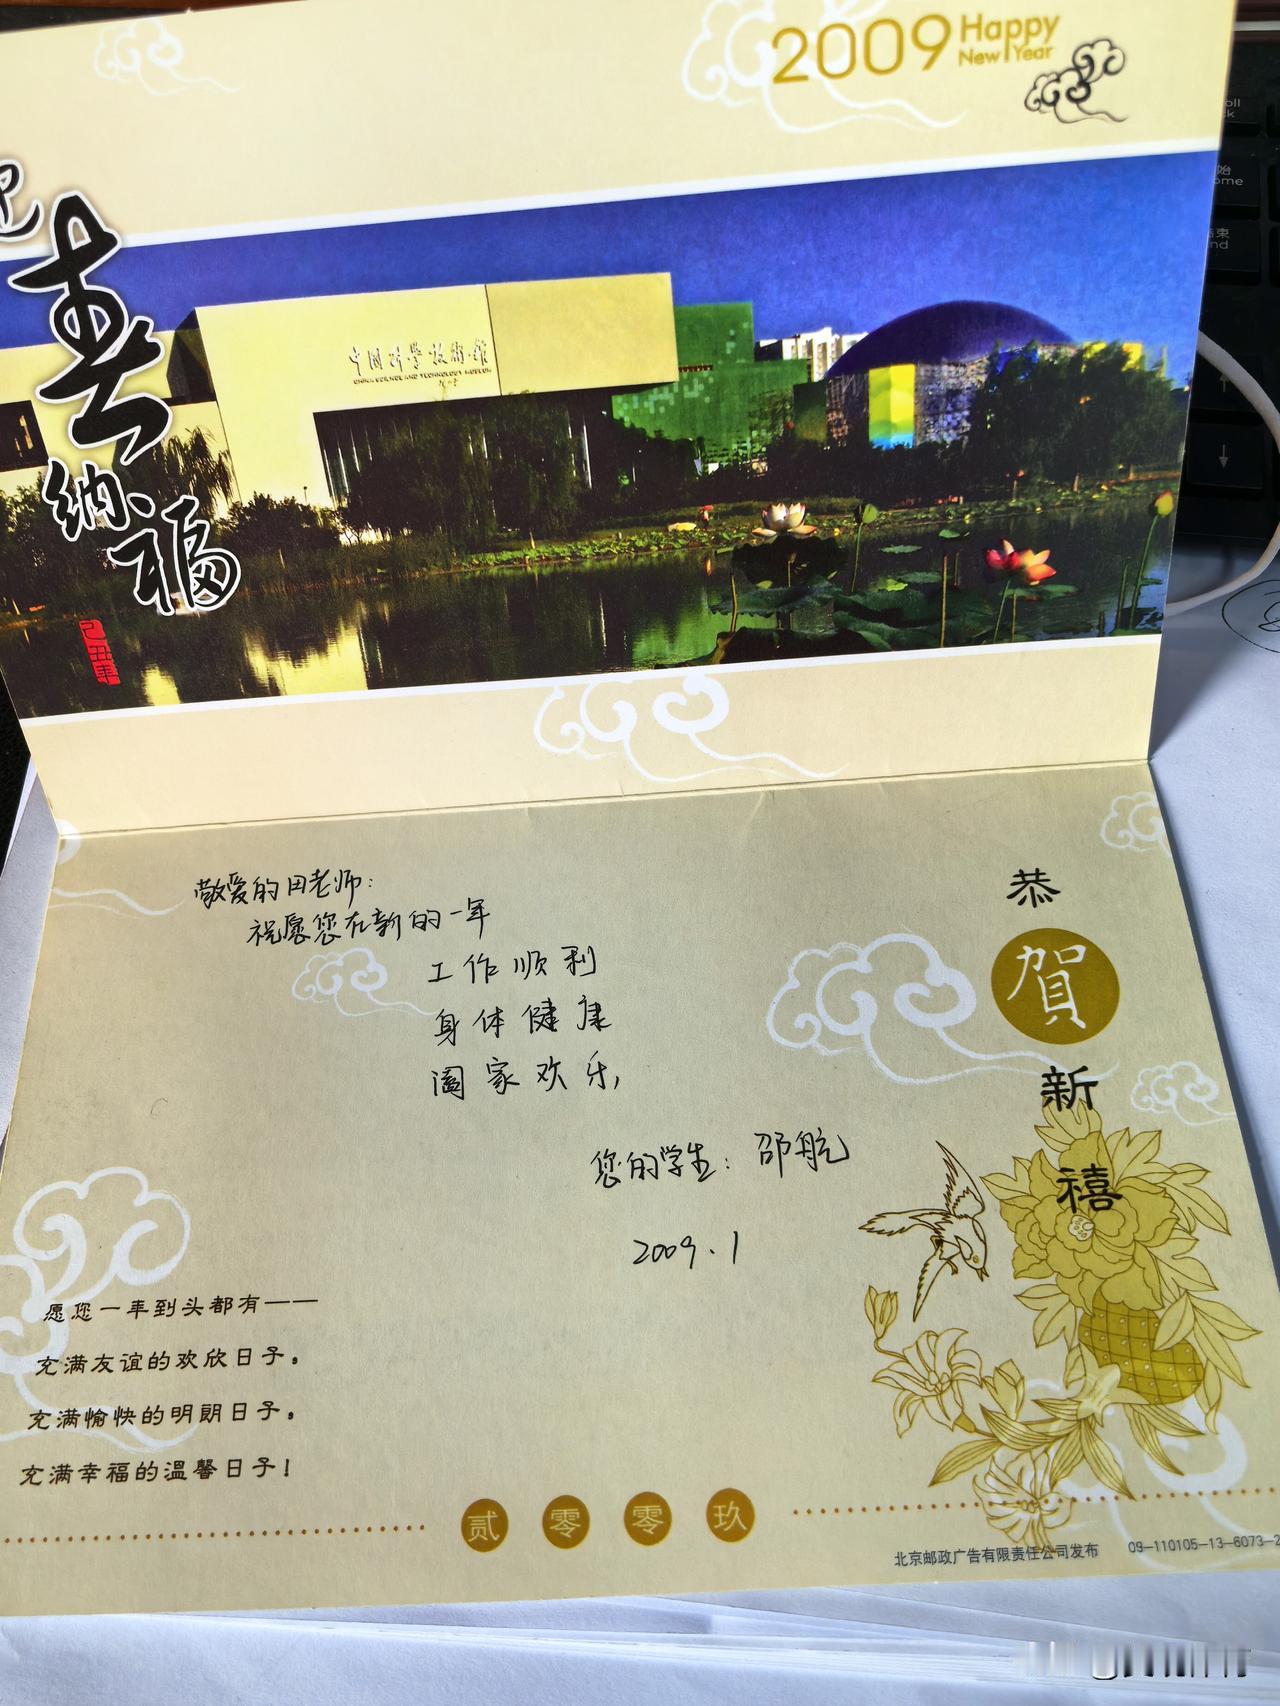 2009 Happy
New Year
迎
春
纳
福
己丑年
中国科学技术馆
CHINA SCIENCE AND TECHNOLOGY MUSEUM
敬爱的田老师：
祝愿您在新的一年
工作顺利
身体健康
阖家欢乐，
您的学生：邵航
2009.1
恭
賀
新
禧
愿您一年到头都有——
充满友谊的欢欣日子。
充满愉快的明朗日子。
充满幸福的温馨日子！
贰零零玖
北京邮政广告有限责任公司发布 09-110105-13-6073-2